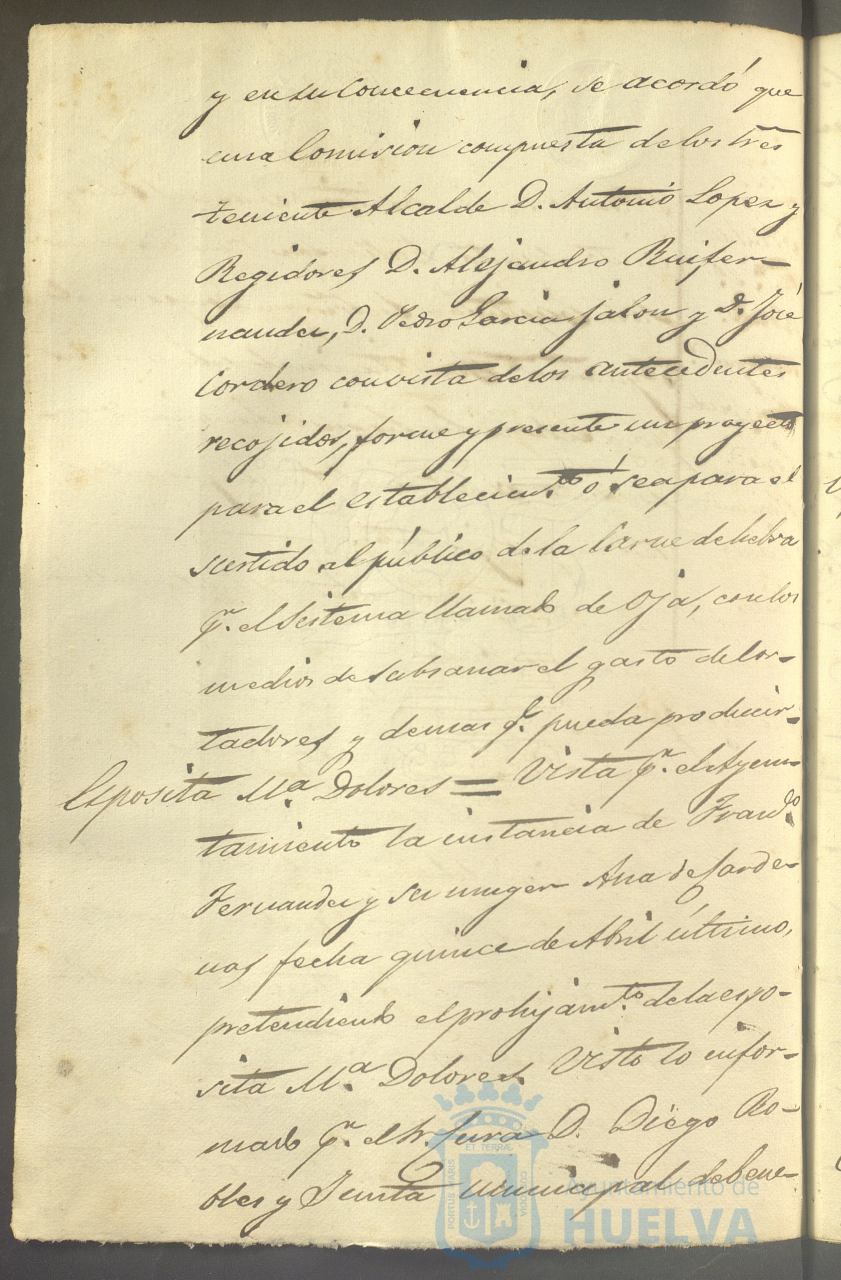 y en su Concecuencia, se acordó que
una Comision compuesta de los tres
teniente Alcalde D. Antonio Lopez y
Regidores D. Alejandro Ruifer-
nandez, D. Pedro Garcia jalon y D. José
Cordero con vista de los antecedentes
recojidos, forme y presente un proyecto
para el establecim.to ó sea para el
surtido al público de la Carne de hebra
p.r el sistema llamado de Oja, con los
medios de subsanar el gasto de Cor-
tadores y demas q.e pueda producir-
Esposita M.a Dolores = Vista p.r el Ayun-
tamiento la instancia de Fran.co
Fernandez y su muger Ana de Carde-
nas fecha quince de Abril último,
pretendiendo el prohijam.to de la espo-
sita M.a Dolores, Visto lo infor-
mado p.r el Sr. Cura D. Diego Ro-
bles y Junta municipal de bene-
PORTUS MARIS
ET TERRÆ
Ayuntamiento de
HUELVA